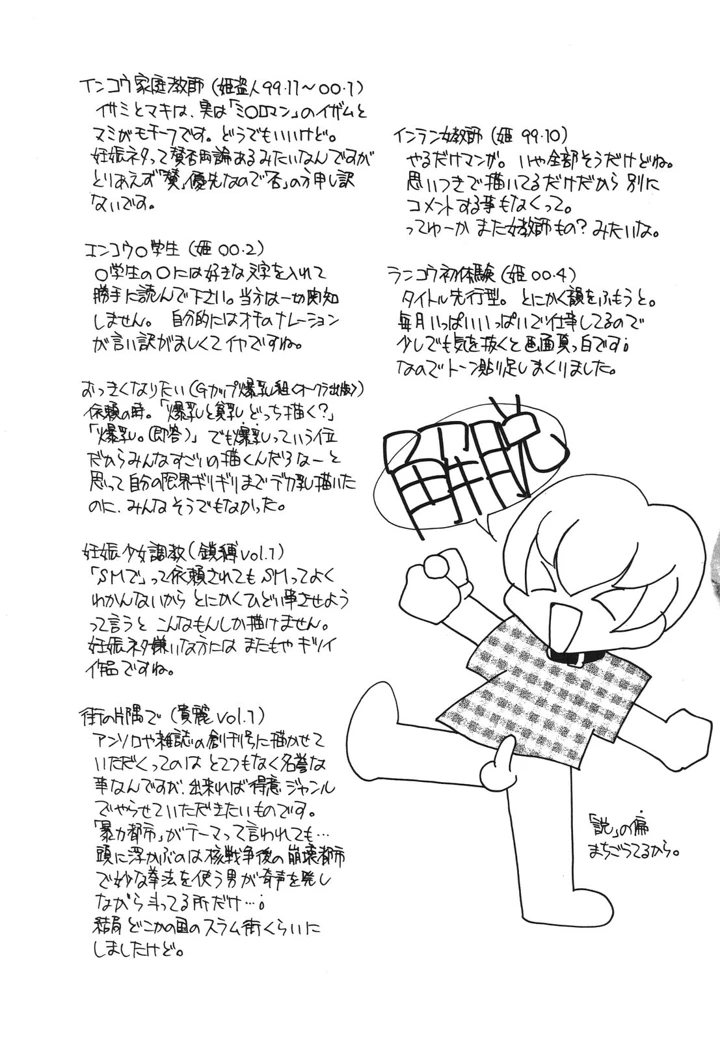 インコウ家庭教師(姫盗人99.11〜00.1)
イサミとマキは、実は「ミ〇ロマン」のイガムと
マミがモチーフです。どうでもいいけど。
妊娠ネタって賛否両論あるみたいなんですが
とりあえず「賛」優先なので「否」の方申し訳
ないです。
エンコウ〇学生(姫00.2)
〇学生の〇には好きな文字を入れて
勝手に読んで下さい。当方は一切関知
しません。 自分的にはオチのナレーション
が言い訳がましくてイヤですね。
おっきくなりたい(Gカップ爆乳組<オークラ出版>)
依頼の時。「爆乳と貧乳どっち描く?」
「爆乳。(即答)」でも爆乳っていう位
だからみんなすごいの描くんだろなーと
思って自分の限界ギリギリまでデカ乳描いた
のに、みんなそうでもなかった。
妊娠少女調教(鎖縛vol.1)
「SMで」って依頼されてもSMってよく
わかんないから とにかくひどい事させよう
って言うと こんなもんしか描けません。
妊娠ネタ嫌いな方には またもやキツイ
作品ですね。
街の片隅で(貴麗vol.1)
アンソロや雑誌の創刊号に描かせて
いただくってのは とてつもなく名誉な
事なんですが、出来れば得意ジャンル
でやらせていただきたいものです。
「暴力都市」がテーマって言われても…
頭に浮かぶのは核戦争後の崩壊都市
で妙な拳法を使う男が奇声を発し
ながら斗ってる所だけ…;
結局どこかの国のスラム街くらいに
しましたけど。
インラン女教師(姫 99.10)
やるだけマンガ。いや全部そうだけどね。
思いつきで描いてるだけだから 別に
コメントする事もなくって。
ってゆーか また女教師もの?みたいな。
ランコウ初体験(姫00.4)
タイトル先行型。とにかく韻をふもうと。
毎月いっぱいいっぱいで仕事してるので
少しでも気を抜くと画面真っ白です;
なのでトーン貼り足しまくりました。
解説
「説」の偏
まちごうてるから。